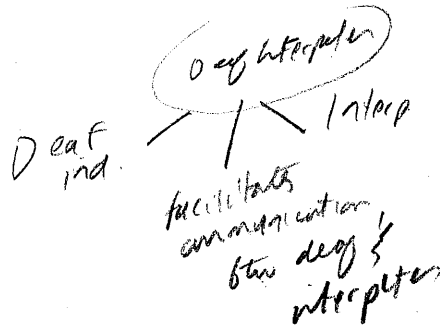 Deaf Interpreter
Deaf
ind.
Interp
facilitates
communication
btw deaf &
interpreters